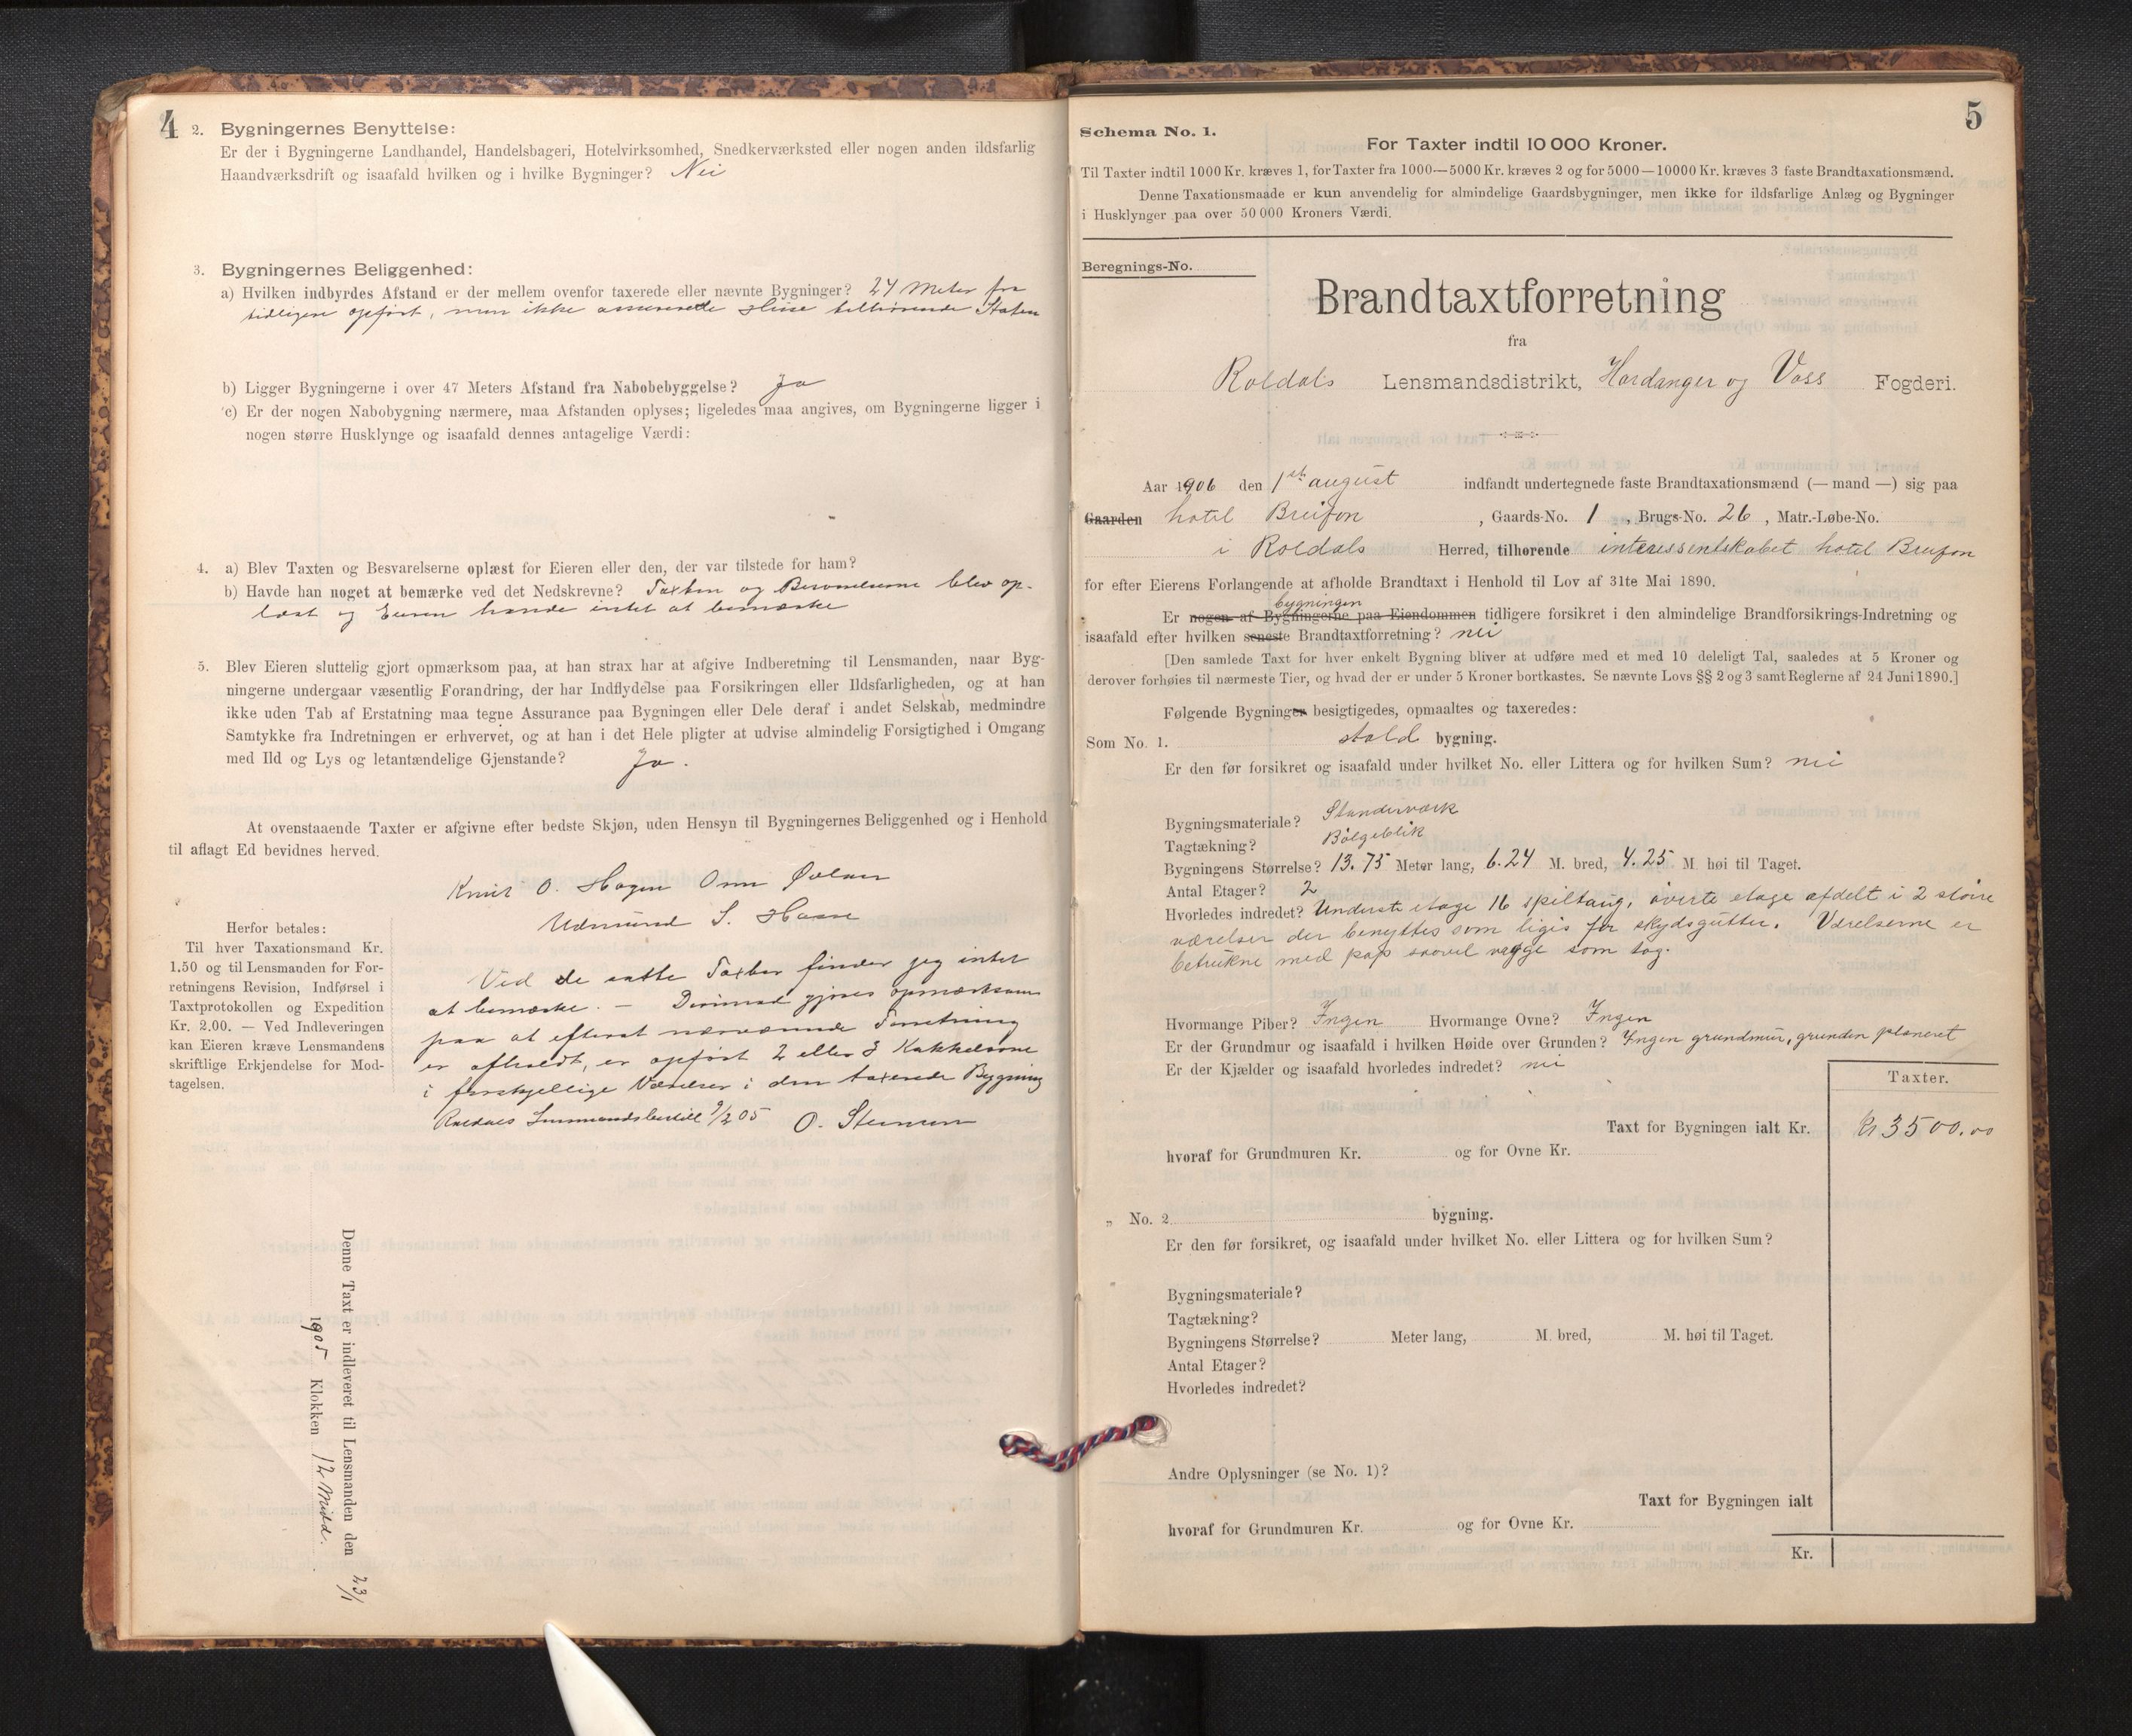 4
2. Bygningernes Benyttelse:
Er der i Bygningerne Landhandel, Handelsbageri, Hotelvirksomhed, Snedkerværksted eller nogen anden ildsfarlig
Haandværksdrift og isaafald hvilken og i hvilke Bygninger? Nei
3. Bygningernes Beliggenhed:
a) Hvilken indbyrdes Afstand er der mellem ovenfor taxerede eller nævnte Bygninger? 24 Meter fra
tidligere opført, men ikke assurerede Huse tilhørende Staten
b) Ligger Bygningerne i over 47 Meters Afstand fra Nabobebyggelse? Ja
c) Er der nogen Nabobygning nærmere, maa Afstanden oplyses; ligeledes maa angives, om Bygningerne ligger i
nogen større Husklynge og isaafald dennes antagelige Værdi:
4. a) Blev Taxten og Besvarelserne oplæst for Eieren eller den, der var tilstede for ham?
b) Havde han noget at bemærke ved det Nedskrevne? Taxten og Besvarelserne blev op-
læst og Eieren havde intet at bemærke
5. Blev Eieren sluttelig gjort opmærksom paa, at han strax har at afgive Indberetning til Lensmanden, naar Byg-
ningerne undergaar væsentlig Forandring, der har Indflydelse paa Forsikringen eller Ildsfarligheden, og at han
ikke uden Tab af Erstatning maa tegne Assurance paa Bygningen eller Dele deraf i andet Selskab, medmindre
Samtykke fra Indretningen er erhvervet, og at han i det Hele pligter at udvise almindelig Forsigtighed i Omgang
med Ild og Lys og letantændelige Gjenstande? Ja.
At ovenstaaende Taxter er afgivne efter bedste Skjøn, uden Hensyn til Bygningernes Beliggenhed og i Henhold
til aflagt Ed bevidnes herved.
Knut O. Hagen
S.
Herfor betales:
Til hver Taxationsmand Kr.
1.50 og til Lensmanden for For-
retningens Revision, Indførsel i
Taxtprotokollen og Expedition
Kr. 2.00. — Ved Indleveringen
kan Eieren kræve Lensmandens
skriftlige Erkjendelse for Mod-
tagelsen.
Ved de satte Taxter finder jeg intet
at bemærke. — Derimod gjøres opmærksom
paa at efterat nærværende Forretning
er afholdt, er opført 2 eller 3 Kakkelovne
i forskjellige Værelser i den taxerede Bygning
Røldals Lensmandsbestill 9/2 05 O.
Denne Taxt er indleveret til Lensmanden den 23/1
1905 Klokken 12 Midd.
5
Schema No. 1.
For Taxter indtil 10 000 Kroner.
Til Taxter indtil 1000 Kr. kræves 1, for Taxter fra 1000—5000 Kr. kræves 2 og for 5000—10000 Kr. kræves 3 faste Brandtaxationsmænd.
Denne Taxationsmaade er kun anvendelig for almindelige Gaardsbygninger, men ikke for ildsfarlige Anlæg og Bygninger
i Husklynger paa over 50 000 Kroners Værdi.
Beregnings-No.
Brandtaxtforretning
fra
Roldals Lensmandsdistrikt, Hardanger og Voss Fogderi.
Aar 1906 den 1st august indfandt undertegnede faste Brandtaxationsmænd (— mand —) sig paa
Gaarden hotel Breifon, Gaards-No. 1, Brugs-No. 26, Matr.-Løbe-No.
i Roldals Herred, tilhørende interessentskabet hotel Breifon
for efter Eierens Forlangende at afholde Brandtaxt i Henhold til Lov af 31te Mai 1890.
bygningen
Er nogen af Bygningerne paa Eiendommen tidligere forsikret i den almindelige Brandforsikrings-Indretning og
isaafald efter hvilken seneste Brandtaxtforretning? nei
[Den samlede Taxt for hver enkelt Bygning bliver at udføre med et med 10 deleligt Tal, saaledes at 5 Kroner og
derover forhøies til nærmeste Tier, og hvad der er under 5 Kroner bortkastes. Se nævnte Lovs §§ 2 og 3 samt Reglerne af 24 Juni 1890.]
Følgende Bygninger besigtigedes, opmaaltes og taxeredes:
Som No. 1. stald bygning.
Er den før forsikret og isaafald under hvilket No. eller Littera og for hvilken Sum? nei
Bygningsmateriale? Standerværk
Tagtækning? Bølgeblik
Bygningens Størrelse? 13.75 Meter lang, 6.24 M. bred, 4.25 M. høi til Taget.
Antal Etager? 2
Hvorledes indredet? Underste etage 16 spiltaug, øverste etage afdelt i 2 større
værelser der benyttes som ligis for skydsgutter. Værelserne er
betrukne med pap saavel vægge som tag.
Hvormange Piber? Ingen Hvormange Ovne? Ingen
Er der Grundmur og isaafald i hvilken Høide over Grunden? Ingen grundmur, grunden planeret
Er der Kjælder og isaafald hvorledes indredet? nei
Taxter.
Taxt for Bygningen ialt Kr. Kr 3500.00
hvoraf for Grundmuren Kr. og for Ovne Kr.
„ No. 2. bygning.
Er den før forsikret, og isaafald under hvilket No. eller Littera og for hvilken Sum?
Bygningsmateriale?
Tagtækning?
Bygningens Størrelse? Meter lang, M. bred, M. høi til Taget.
Antal Etager?
Hvorledes indredet?
Andre Oplysninger (se No. 1)?
Taxt for Bygningen ialt
hvoraf for Grundmuren Kr. og for Ovne Kr.
Kr.